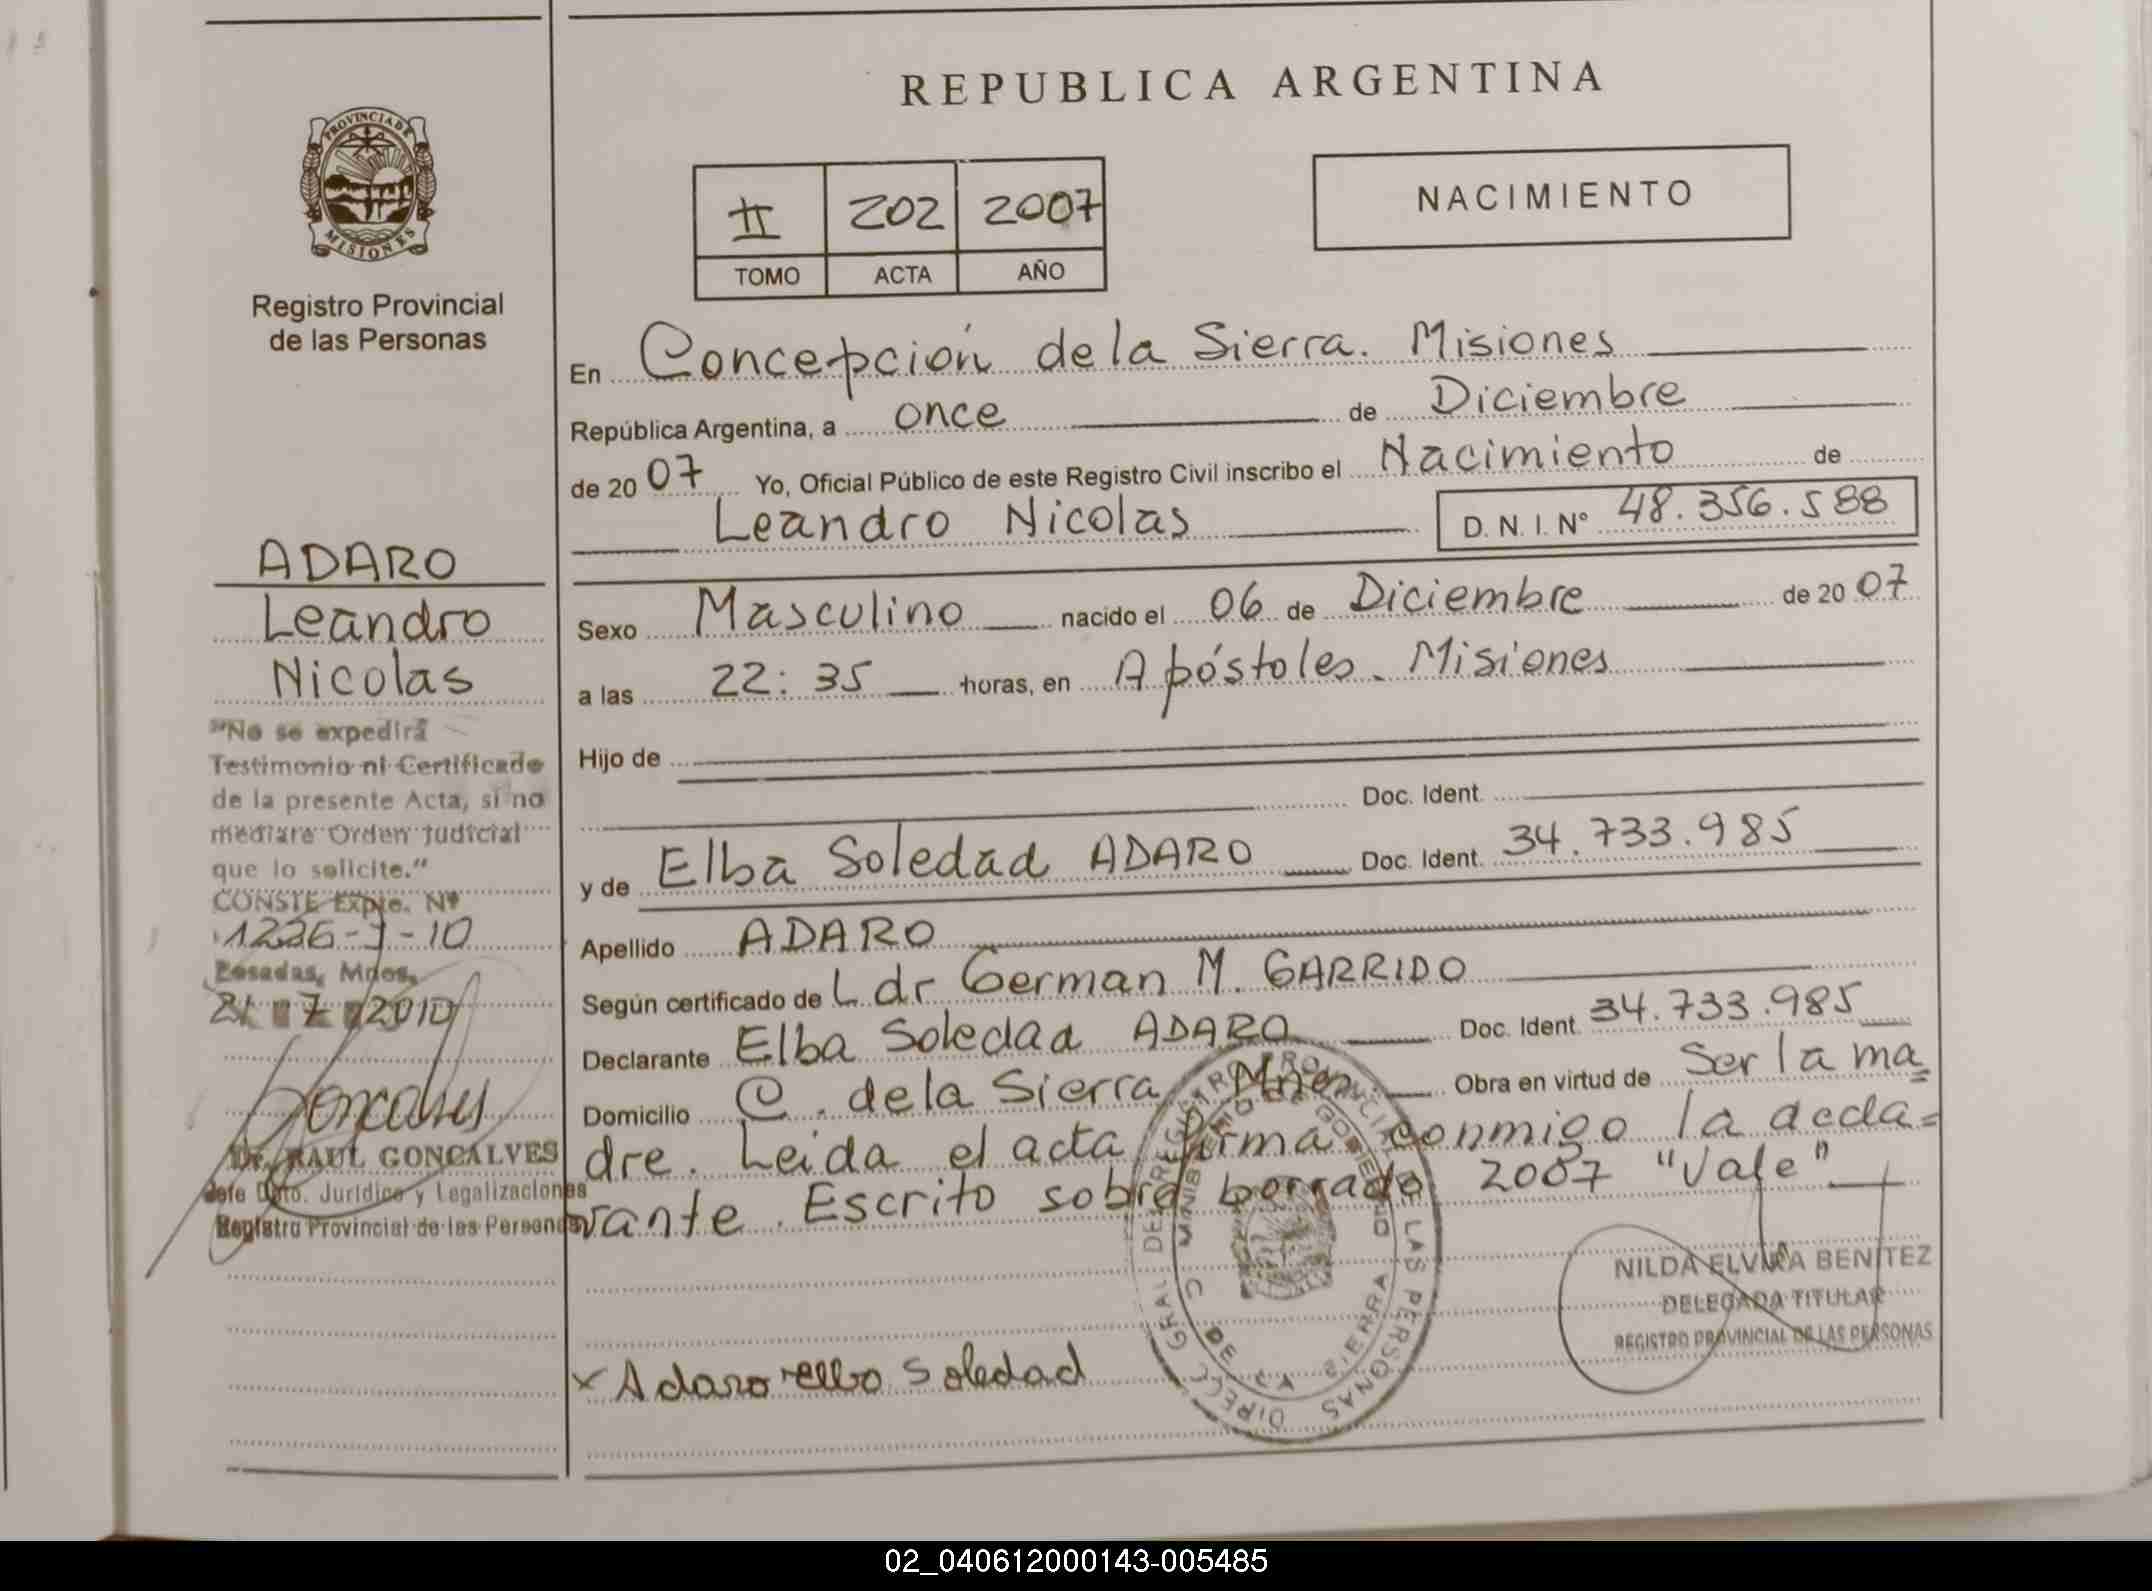 REPUBLICA ARGENTINA
PROVINCIA DE
MISIONES
Registro Provincial
de las Personas
II 202 2007
TOMO ACTA AÑO
NACIMIENTO
En Concepción de la Sierra. Misiones
República Argentina, a once de Diciembre
de 2007 Yo, Oficial Público de este Registro Civil inscribo el Nacimiento de
Leandro Nicolas D. N. I. Nº 48.356.588
ADARO
Leandro
Nicolas
"No se expedirá
Testimonio ni Certificado
de la presente Acta, si no
mediare Orden Judicial
que lo solicite."
CONSTE Expte. Nº
1226-J-10
Posadas, Mnes,
21 7 2010
Dr. RAUL GONCALVES
Jefe Dpto. Jurídico y Legalizaciones
Registro Provincial de las Personas
Sexo Masculino nacido el 06 de Diciembre de 2007
a las 22:35 horas, en Apóstoles. Misiones
Hijo de
Doc. Ident.
y de Elba Soledad ADARO Doc. Ident. 34.733.985
Apellido ADARO
Según certificado de Ldr German M. GARRIDO
Declarante Elba Soledad ADARO Doc. Ident. 34.733.985
Domicilio C. de la Sierra Mnes Obra en virtud de Ser la ma=
dre. Leida el acta firma conmigo la decla=
rante. Escrito sobre borrado 2007 "Vale"
DIRECC GRAL DEL REGISTRO PROVINCIAL DE LAS PERSONAS
MINISTERIO DE GOBIERNO
C DE LA SIERRA
NILDA ELVIRA BENITEZ
DELEGADA TITULAR
REGISTRO PROVINCIAL DE LAS PERSONAS
x Adaro elba Soledad
02_040612000143-005485